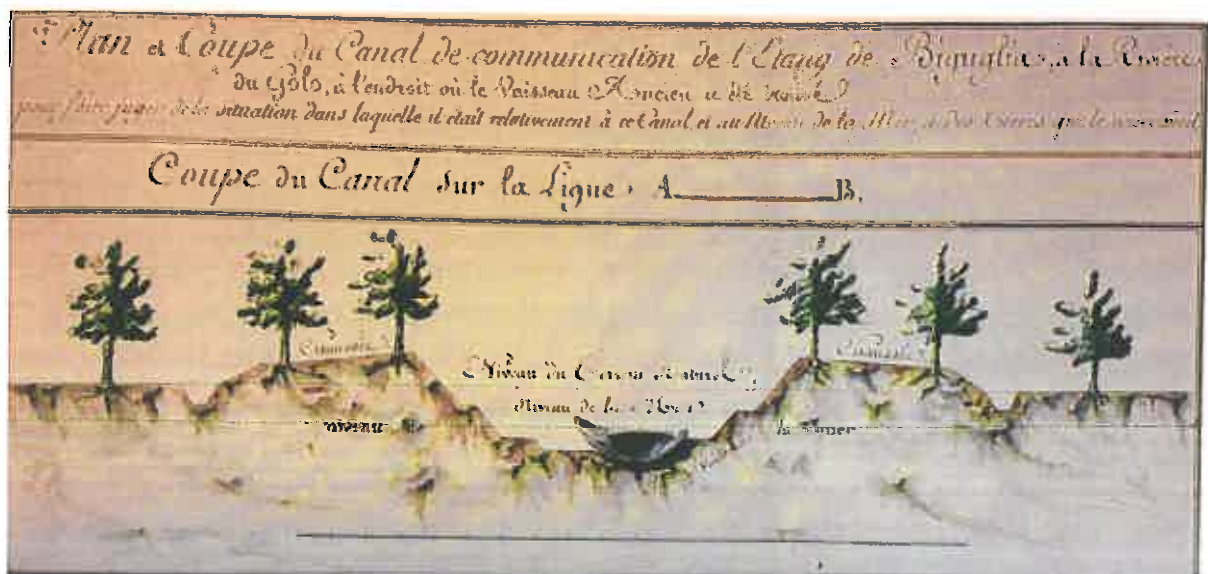 Plan et Coupe du Canal de communication de l'Etang de Biguglia, à la Rivière
du Golo, à l'endroit où le Vaisseau Ancien a été trouvé
pour faire juger de la situation dans laquelle il était relativement à ce Canal et au Niveau de la Mer, et des terres que le
Coupe du Canal sur la Ligne A B.
Niveau du Terrein Naturel
Niveau de la Mer
niveau de la mer